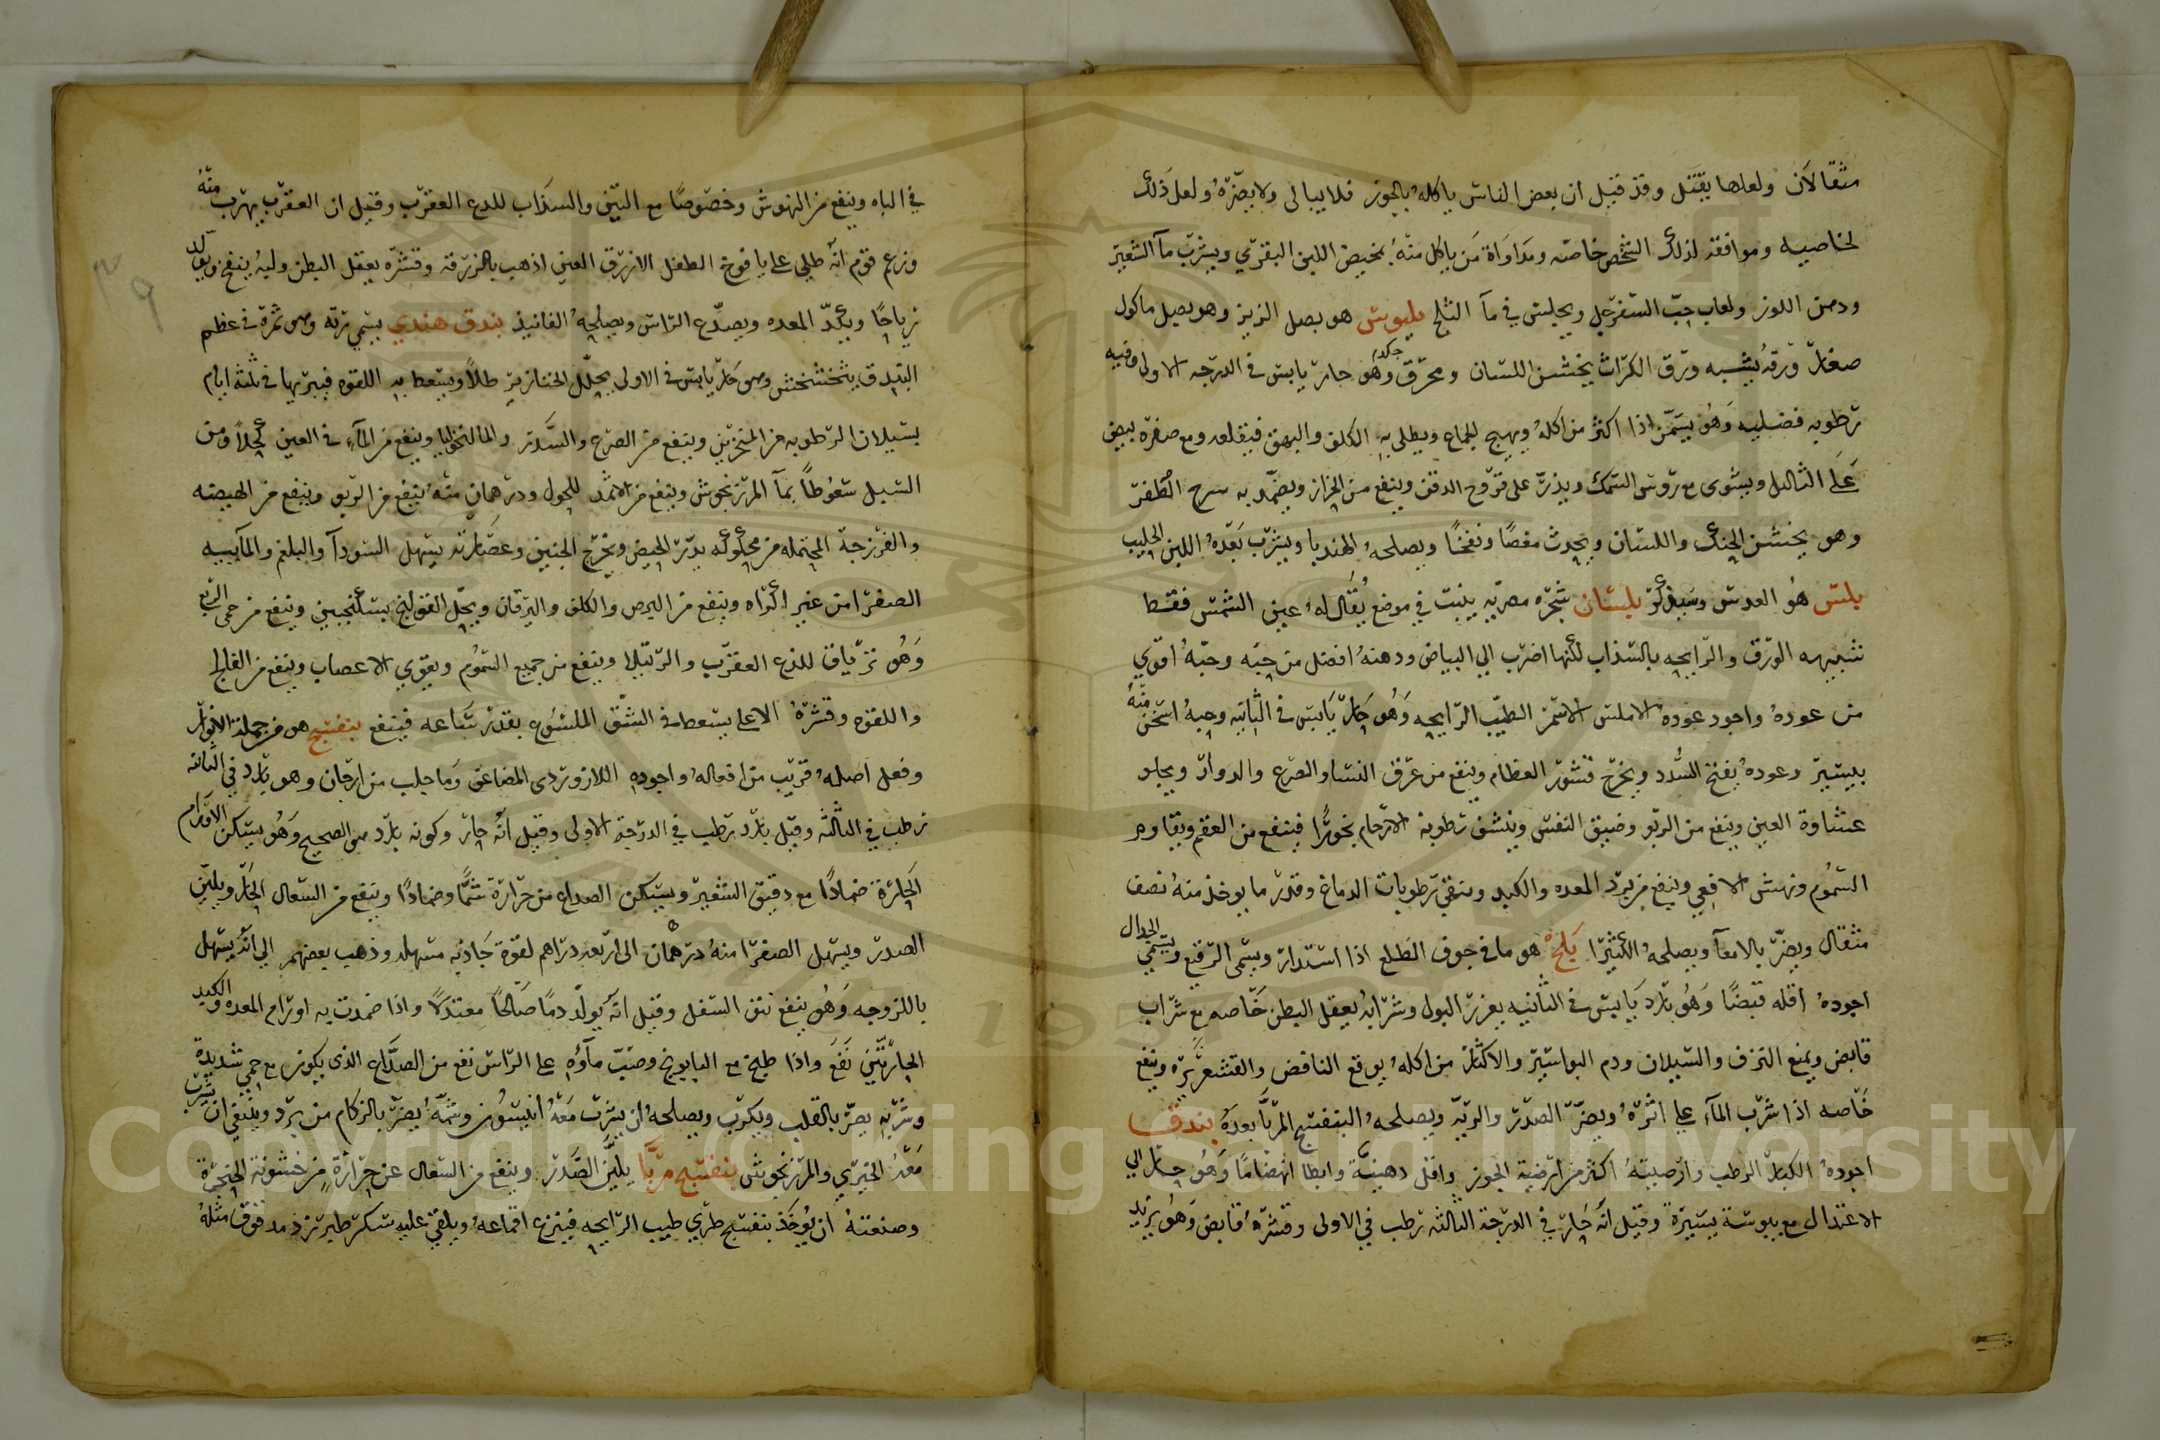 مثقالان ولعلها يقتل وقد قيل ان بعض الناس ياكله بالجوز فلا يبالى ولا يضره ولعل ذلك
لخاصيه وموافقه لذلك الشخص خاصه ومداواة من ياكل منه بمخيض اللبن البقري ويشرب مآ الشعير
ودهن اللوز ولعاب حب السفرجل ويجلس في مآ الثلج بلبوس هو بصل الزيز وهو بصل ماكول
صغار ورقه يشبه ورق الكراث يخشن اللسان ومحرق حكه وهو حار يابس في الدرجه الاولى وفيه
رطوبه فضليه وهو يسمن اذا اكثر من اكله ويهيج للجماع ويطلى به الكلف والبهق فيقلعه ومع صفرة بيض
على الثاليل ويشوى مع روس السمك ويذر على قروح الذقن وينفع من الحزاز ويضمد به سرح الظفر
وهو يخشن الحنك واللسان ويحدث مغصا ونفخا ويصلحه الهندبا ويشرب بعده اللبن الحليب
بلس هو العدس وسيذكر بلسان شجره مصريه ينبت في موضع يقال له عين الشمس فقط
شبيهه الورق والرايحه بالسذاب لكنها اضرب الي البياض ودهنه افضل من حبه وحبه اقوي
من عوده واجود عوده الاملس الاسمر الطيب الرايحه وهو حار يابس في الثانيه وحبه اسخن منه
بيسير وعوده يفتح السدد ويخرج قشور العظام وينفع من عرق النسا والصرع والدوار ويجلو
غشاوة العين وينفع من الربو وضيق النفس وينشف رطوبة الارحام بخورا فينفع من العقم ويقاوم
السموم ونهش الافعي وينفع من برد المعده والكبد وينقي رطوبات الدماغ وقدر ما يوخذ منه نصف
مثقال ويضر بالامعآ ويصلحه الكثيرا بلح هو ما في جوف الطلع اذا استدار ويسمى الرقيع ويسمي الجدال
اجوده اقله قبضا وهو بارد يابس في الثانيه يغزر البول وشرابه يعقل البطن خاصه مع شراب
قابض ويمنع النزف والسيلان ودم البواسير والاكثار من اكله يوقع النافض والقشعريره وينفع
خاصه اذا شرب المآء على اثره ويضر الصدر والريه ويصلحه البنفسج المربا بعده بندق
اجوده الكبار الرطب وارضيته اكثر من ارضية الجوز واقل دهنية وابطا انهضاما وهو حار الي
الاعتدال مع يبوسة يسيرة وقيل انه حار في الدرجة الثالثه رطب في الاولى وقشره قابض وهو يزيد
في الباه وينفع من النهوش وخصوصا مع التين والسذاب للدغ العقرب وقيل ان العقرب يهرب منه
وزعم قوم انه طلي على يافوخ الطفل الازرق العين اذهب بالزرقة وقشره يعقل البطن ولبه ينفخ ويولد
رياحا ويكد المعده ويصدع الراس ويصلحه الفانيذ بندق هندي يسمي رته وهى ثمرة في عظم
البندق يتخشخش وهى حار يابس في الاولى يحلل الخنازير طلاً ويستعط به اللقوه فيبريها في ثلثة ايام
بسيلان الرطوبه من المنخرين وينفع من الصرع والسدر والمالنخوليا وينفع من المآء في العين كحلاً ومن
السيل سعوطاً بمآ المرزنجوش وينفع من الاثمد للحول ودرهمان منه ينفع من الربو وينفع من الهيضه
والفرزجة المحتمله من محكوكه يدر الحيض ويخرج الجنين وعصارته يسهل السودآ والبلغم والمآييه
الصفرا من غير اكراه وينفع من البرص والكلف واليرقان ويحل القولنج بسكنجبين وينفع من حمى الربع
وهو ترياق للدغ العقرب والرتيلا وينفع من جميع السموم ويقوي الاعصاب وينفع من الفالج
واللقوه وقشره الاعلى يستعط في الشق الملسوع بقدر شعاعه فينفع بنفسج هو من جملة الانوار
وفعل اصله قريب من افعاله واجوده اللازوردى المضاعف وما جلب من ارجان وهو بارد في الثانيه
رطب في الثالثه وقيل بارد رطب في الدرجة الاولى وقيل انه حار وكونه بارد هى الصحيح وهو يسكن الاورام
الحارة ضمادا مع دقيق الشعير ويسكن الصداع من حرارة شما وضمادا وينفع من السعال الحار ويلين
الصدر ويسهل الصفرا منه درهمان الى اربعه دراهم لقوة جاذبه مسهله وذهب بعضهم الي انه يسهل
باللزوجه وهو ينفع نتق السفل وقيل انه يولد دما صالحا معتدلا واذا ضمدت به اورام المعده والكبد
الحارتين نفع واذا طبخ مع البابونج وصب مآؤه على الراس نفع من الصداع الذى يكون مع حمى شديدة
وشربه يضر بالقلب ويكرب ويصلحه ان يشرب معه انيسون وشمه يضر بالزكام من برد وينبغي ان يشرب
معه الخيري والمرزنجوش بنفسج مربا يلين الصدر وينفع من السعال عن حرارة من خشونة الحنجرة
وصنعته ان يوخذ بنفسج طري طيب الرايحه فينزع اقماعه ويلقي عليه سكر طبرزذ مدقوق مثله